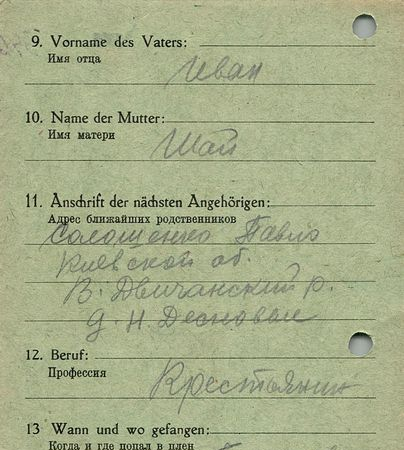 9. Vorname des Vaters:
Имя отца
Иван
10. Name der Mutter:
Имя матери
Шай
11. Anschrift der nächsten Angehörigen:
Адрес ближайших родственников
Солошенко Павло
Киевской об.
В. Двичанский р.
д. Н
12. Beruf:
Профессия
Крестьянин
13 Wann und wo gefangen:
Когда и где попал в плен